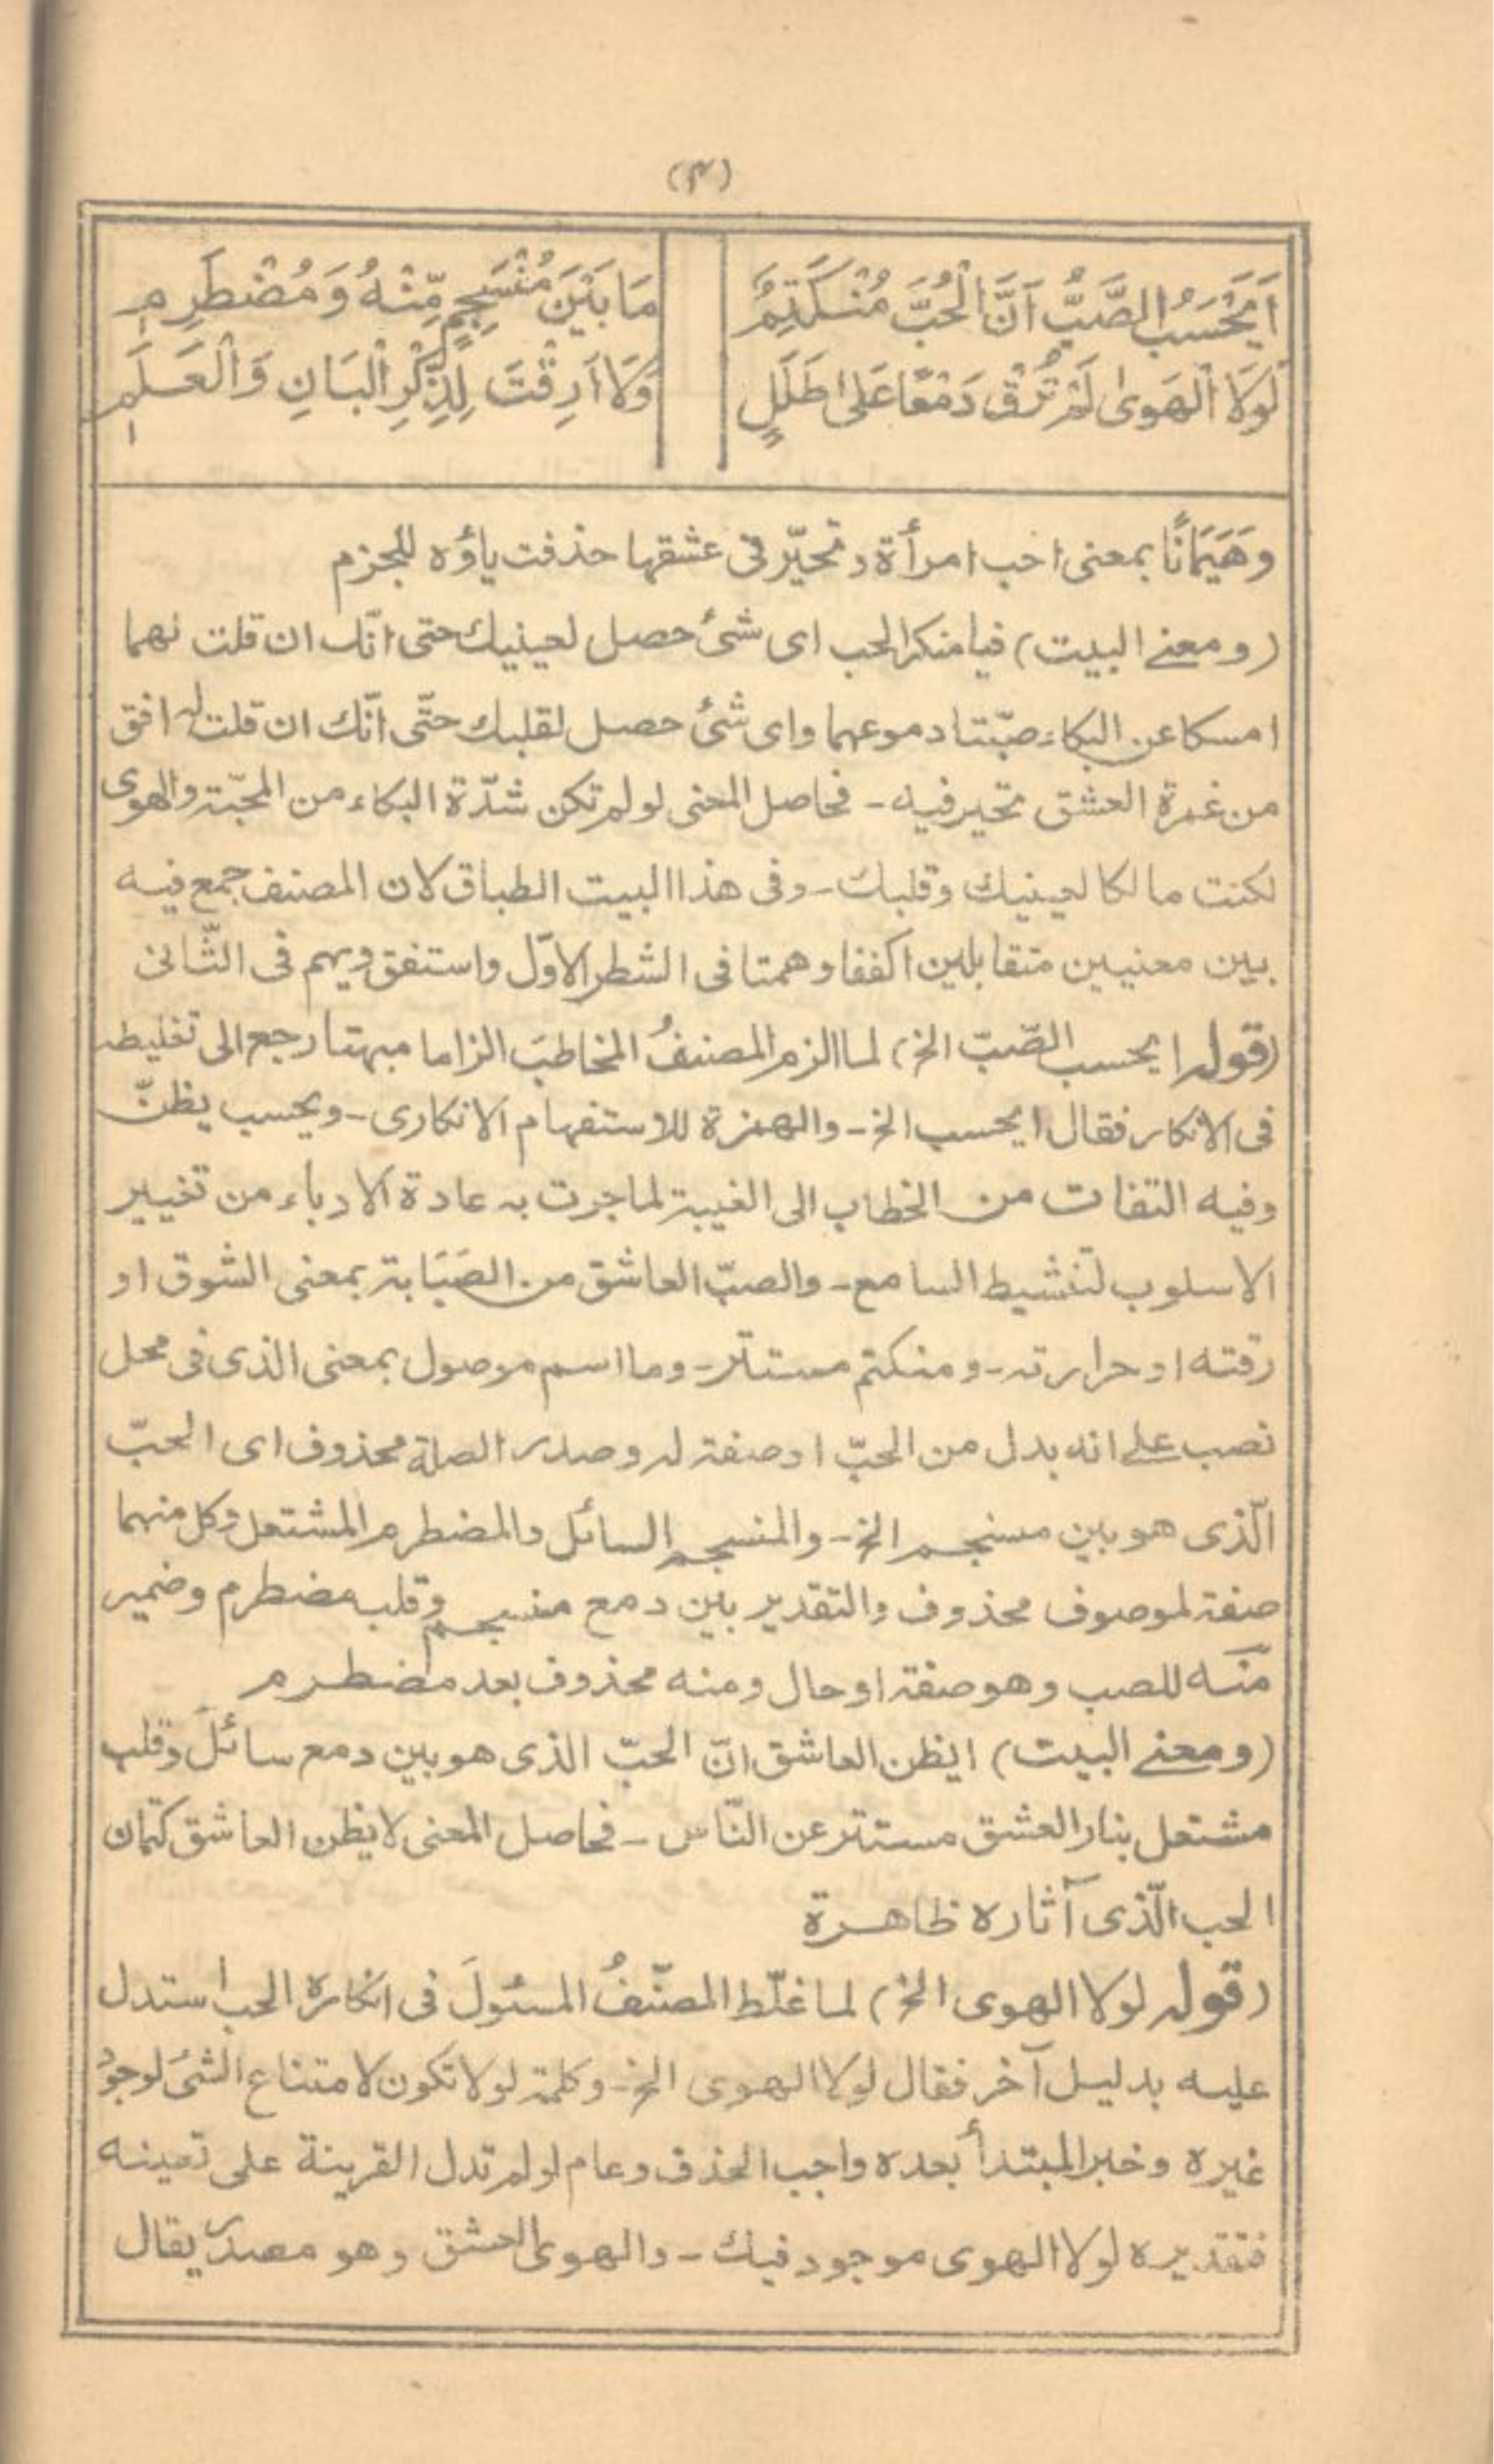 (۴)
اَيَحْسَبُ الصَّبُّ اَنَّ الْحُبَّ مُنْكَتِمٌ مَا بَيْنَ مُنْسَجِمٍ مِّنْهُ وَمُضْطَرِمٖ
لَوْلَا الْهَوىٰ لَمْ تُرِقْ دَمْعًا عَلىٰ طَلَلٍ وَلَا اَرِقْتَ لِذِكْرِ الْبَانِ وَالْعَلَمٖ
وهَيَمَانًا بمعنى احب امرأة وتحيّر فى عشقها حذفت ياؤه للجزم
(ومعنے البيت) فيا منكر الحب اى شئ حصل لعينيك حتى انّك ان قلت لهما
امسكا عن البكاء صبّتا دموعهما واى شئ حصل لقلبك حتّى انّك ان قلت له افق
من غمرة العشق تحير فيه - فحاصل المعنى لو لم تكن شدّة البكاء من المحبّة والهوى
لكنت مالكا لعينيك وقلبك - وفى هذا البيت الطباق لان المصنف جمع فيه
بين معنيين متقابلين اكففا وهمتا فى الشطر الاوّل واستفق ويهم فى الثّانى
(قوله ايحسب الصّبّ الخ) لما الزم المصنفُ المخاطبَ الزاما مبهتا رجع الى تغليطه
فى الانكار فقال ايحسب الخ - والهمزة للاستفهام الانكارى - ويحسب يظنّ
وفيه التفات من الخطاب الى الغيبة لما جرت به عادة الادباء من تغيير
الاسلوب لتنشيط السامع - والصبّ العاشق من الصَبَابة بمعنى الشوق او
رقته او حرارته - ومنكتم مستتر - وما اسم موصول بمعنى الذى فى محل
نصب علے انه بدل من الحبّ او صفة له وصدر الصلة محذوف اى الحبّ
الّذى هو بين مسنجم الخ - والمنسجم السائل والمضطرم المشتعل وكل منهما
صفة لموصوف محذوف والتقدير بين دمع منسجم وقلب مضطرم وضمير
منه للصب وهو صفة او حال ومنه محذوف بعد مضطرم
(ومعنے البيت) ايظن العاشق انّ الحبّ الذى هو بين دمع سائل وقلب
مشتعل بنار العشق مستتر عن النّاس - فحاصل المعنى لا يظن العاشق كتمان
الحب الّذى آثاره ظاهرة
(قوله لولا الهوى الخ) لما غلّط المصنّفُ المسئولَ فى انكاره الحب استدل
عليه بدليل آخر فقال لولا الهوى الخ - وكلمة لولا تكون لامتناع الشئ لوجود
غيره وخبر المبتدأ بعده واجب الحذف وعام لو لم تدل القرينة على تعينه
فتقديره لولا الهوى موجود فيك - والهوى العشق وهو مصدر يقال